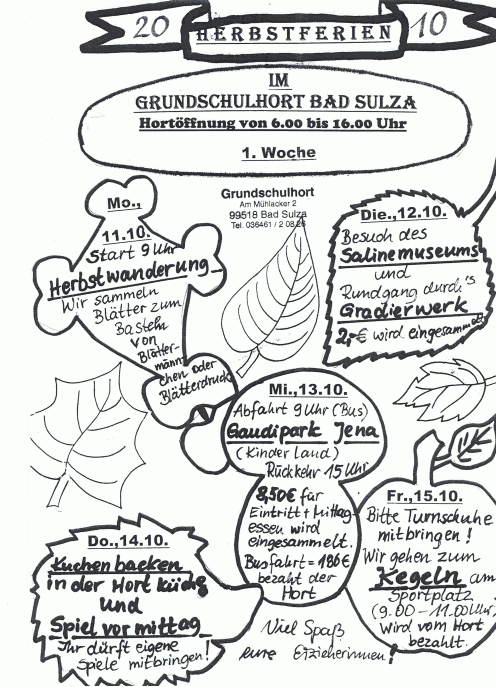 20 HERBSTFERIEN 10
IM
GRUNDSCHULHORT BAD SULZA
Hortöffnung von 6.00 bis 16.00 Uhr
1. Woche
Grundschulhort
Am Mühlacker 2
99518 Bad Sulza
Tel. 036461 / 2 08
Mo.,
11.10.
Start 9 Uhr
Herbstwanderung
Wir sammeln
Blätter zum
Basteln
von
Blätter-
männ
chen oder
Blätterdruck
Die.,12.10.
Besuch des
Salinemuseums
und
Rundgang durch's
Gradierwerk
2,-€ wird eingesammelt
Mi.,13.10.
Abfahrt 9 Uhr (Bus)
Gaudipark Jena
(Kinderland)
Rückkehr 15 Uhr
8,50€ für
Eintritt + Mittag
essen wird
eingesammelt.
Busfahrt = 186€
bezahlt der
Hort
Do.,14.10.
Kuchen backen
in der Hortküche
und
Spielvormittag
Ihr dürft eigene
Spiele mitbringen!
Fr.,15.10.
Bitte Turnschuhe
mitbringen!
Wir gehen zum
Kegeln am
Sportplatz
(9.00 - 11.00 Uhr)
Wird vom Hort
bezahlt.
Viel Spaß
eure Erzieherinnen!